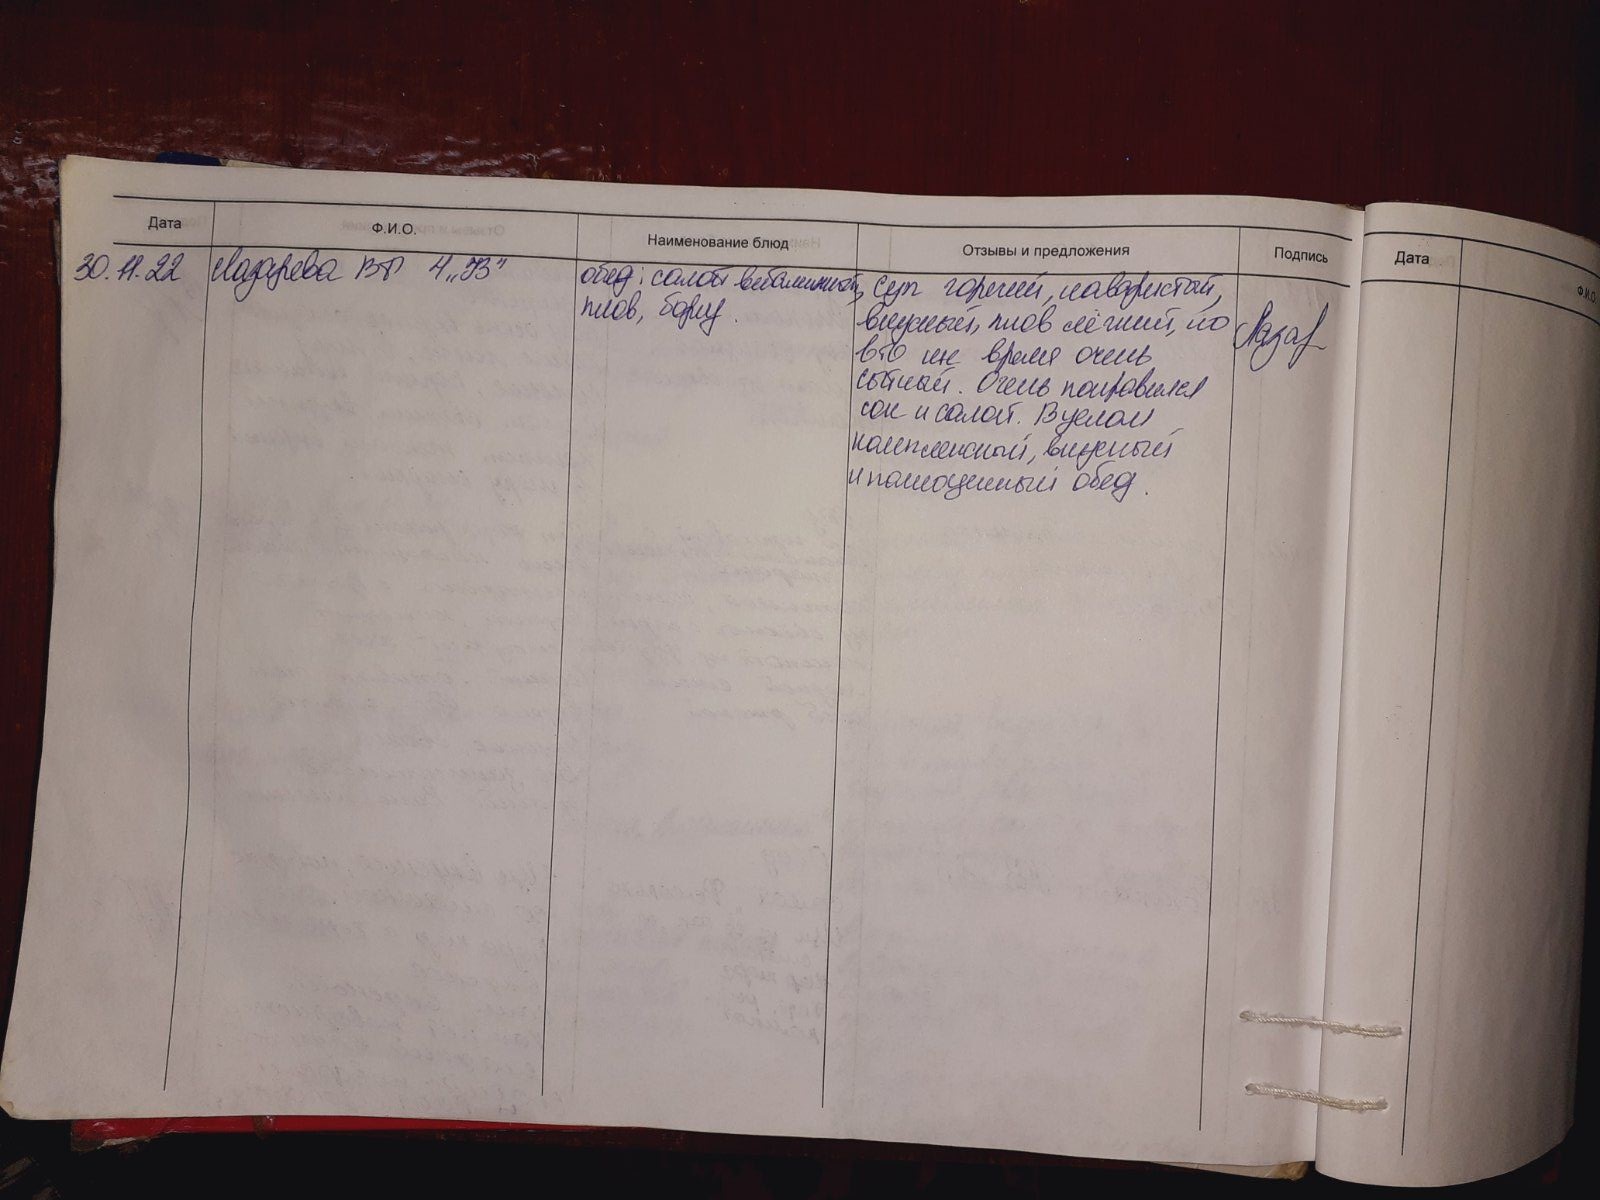 Дата Ф.И.О. Наименование блюд Отзывы и предложения Подпись Дата Ф.И.О
30.11.22 Лазарева В.Р. 4 „В"
обед: салат витаминный,
плов, борщ.
Суп горячий, наваристый,
вкусный, плов лёгкий, но
в то же время очень
сытный. Очень понравился
сок и салат. В целом
комплексный, вкусный
и полноценный обед.
Лазар